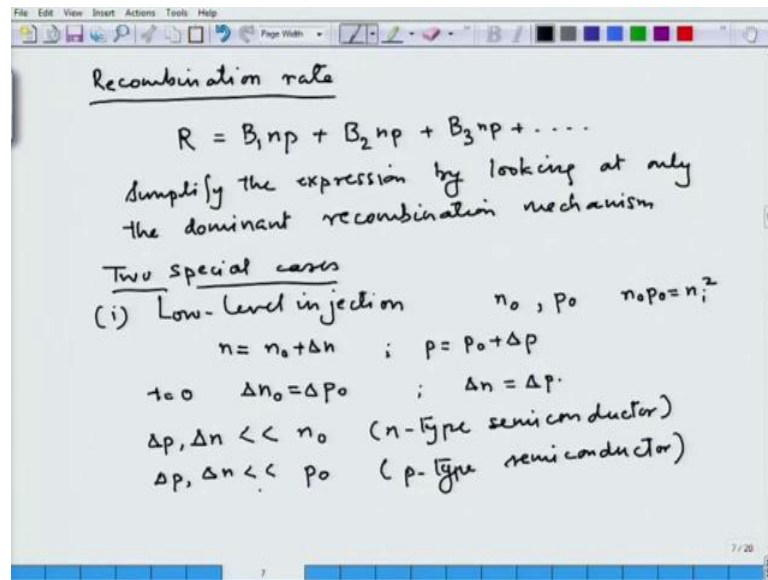 File Edit View Insert Actions Tools Help
Page Width B I
Recombination rate
R = B₁np + B₂np + B₃np + ....
Simplify the expression by looking at only
the dominant recombination mechanism
Two special cases
(i) Low-level injection n₀ , p₀ n₀p₀ = nᵢ²
n = n₀ + Δn ; p = p₀ + Δp
t=0 Δn₀ = Δp₀ ; Δn = Δp.
Δp, Δn << n₀ (n-type semiconductor)
Δp, Δn << p₀ (p-type semiconductor)
7/20
7